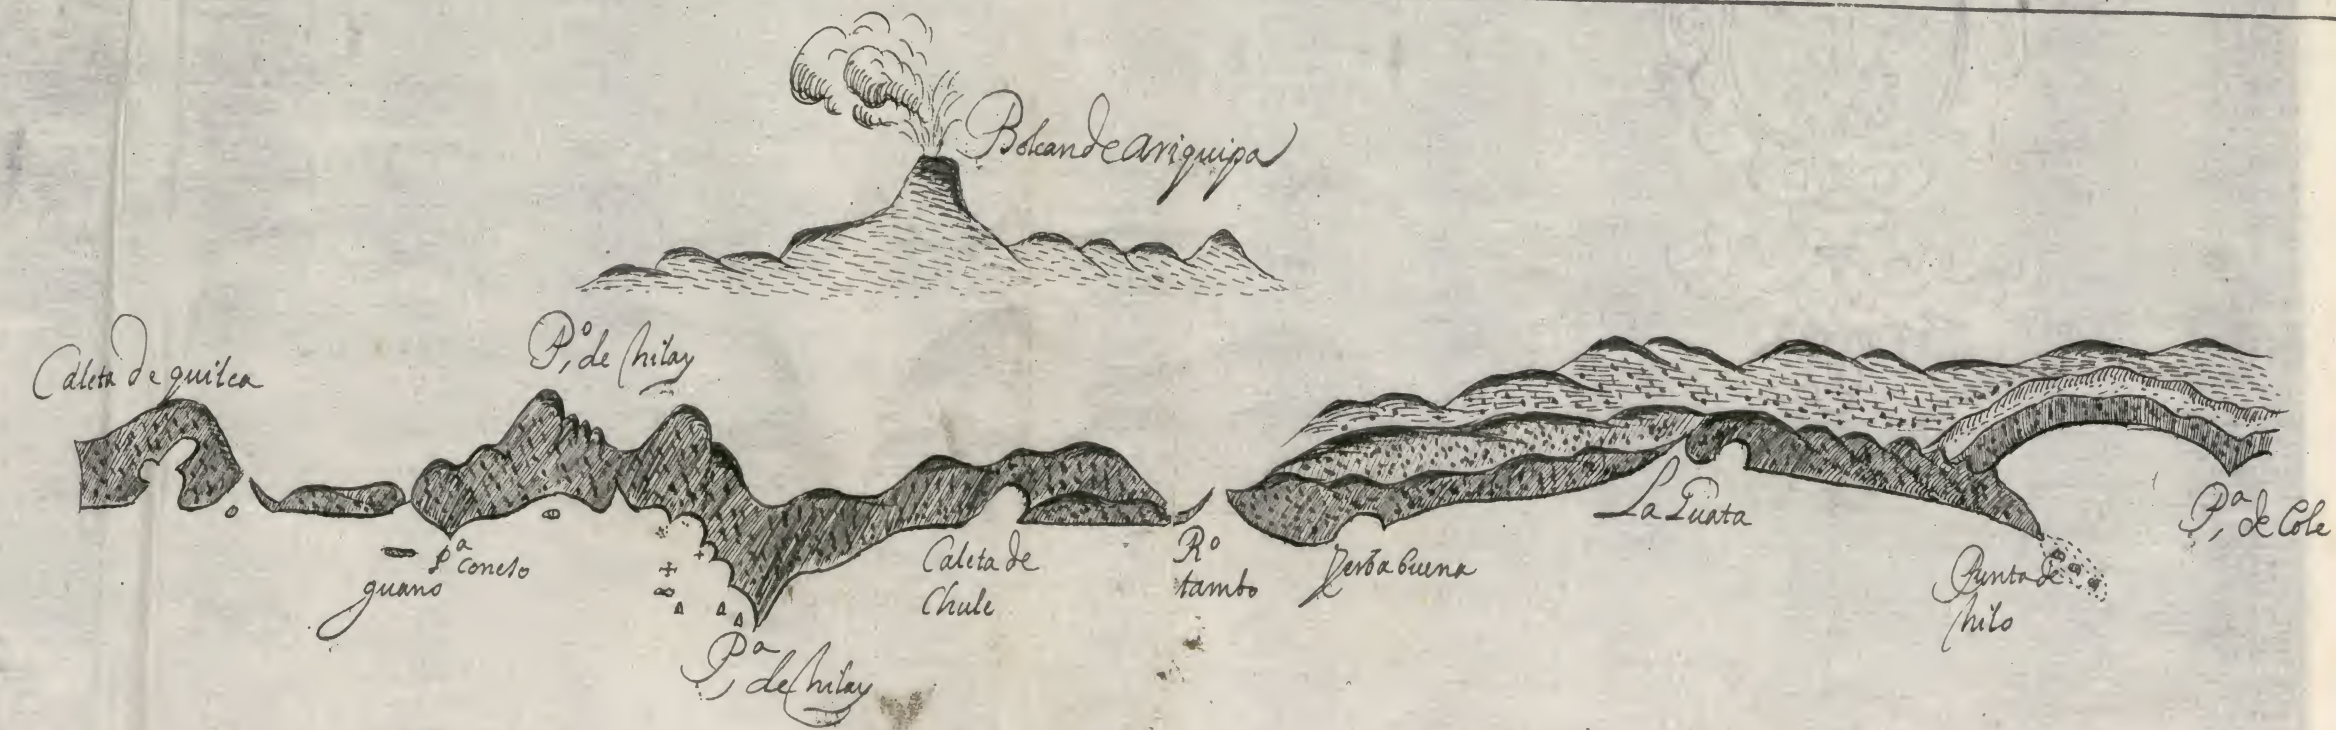 Bolcan de Ariquipa
Caleta de quilca
P.º de hilay
guano
P.ª conelo
P.ª de hilay
Caleta de
Chule
Rº
tambo
Yerba buena
La Puata
Punta de
hilo
P.ª de Cole